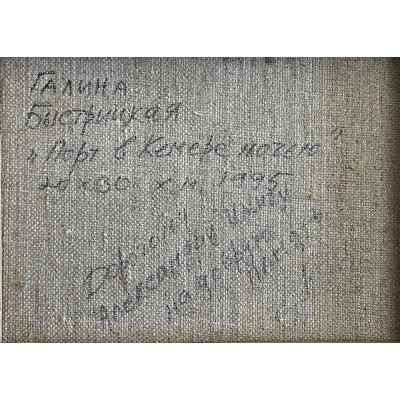 Галина
Быстрицкая
„Порт в Кемере ночью"
20х30 х.м. 1995
Дорогому
Александру
на добрую
память